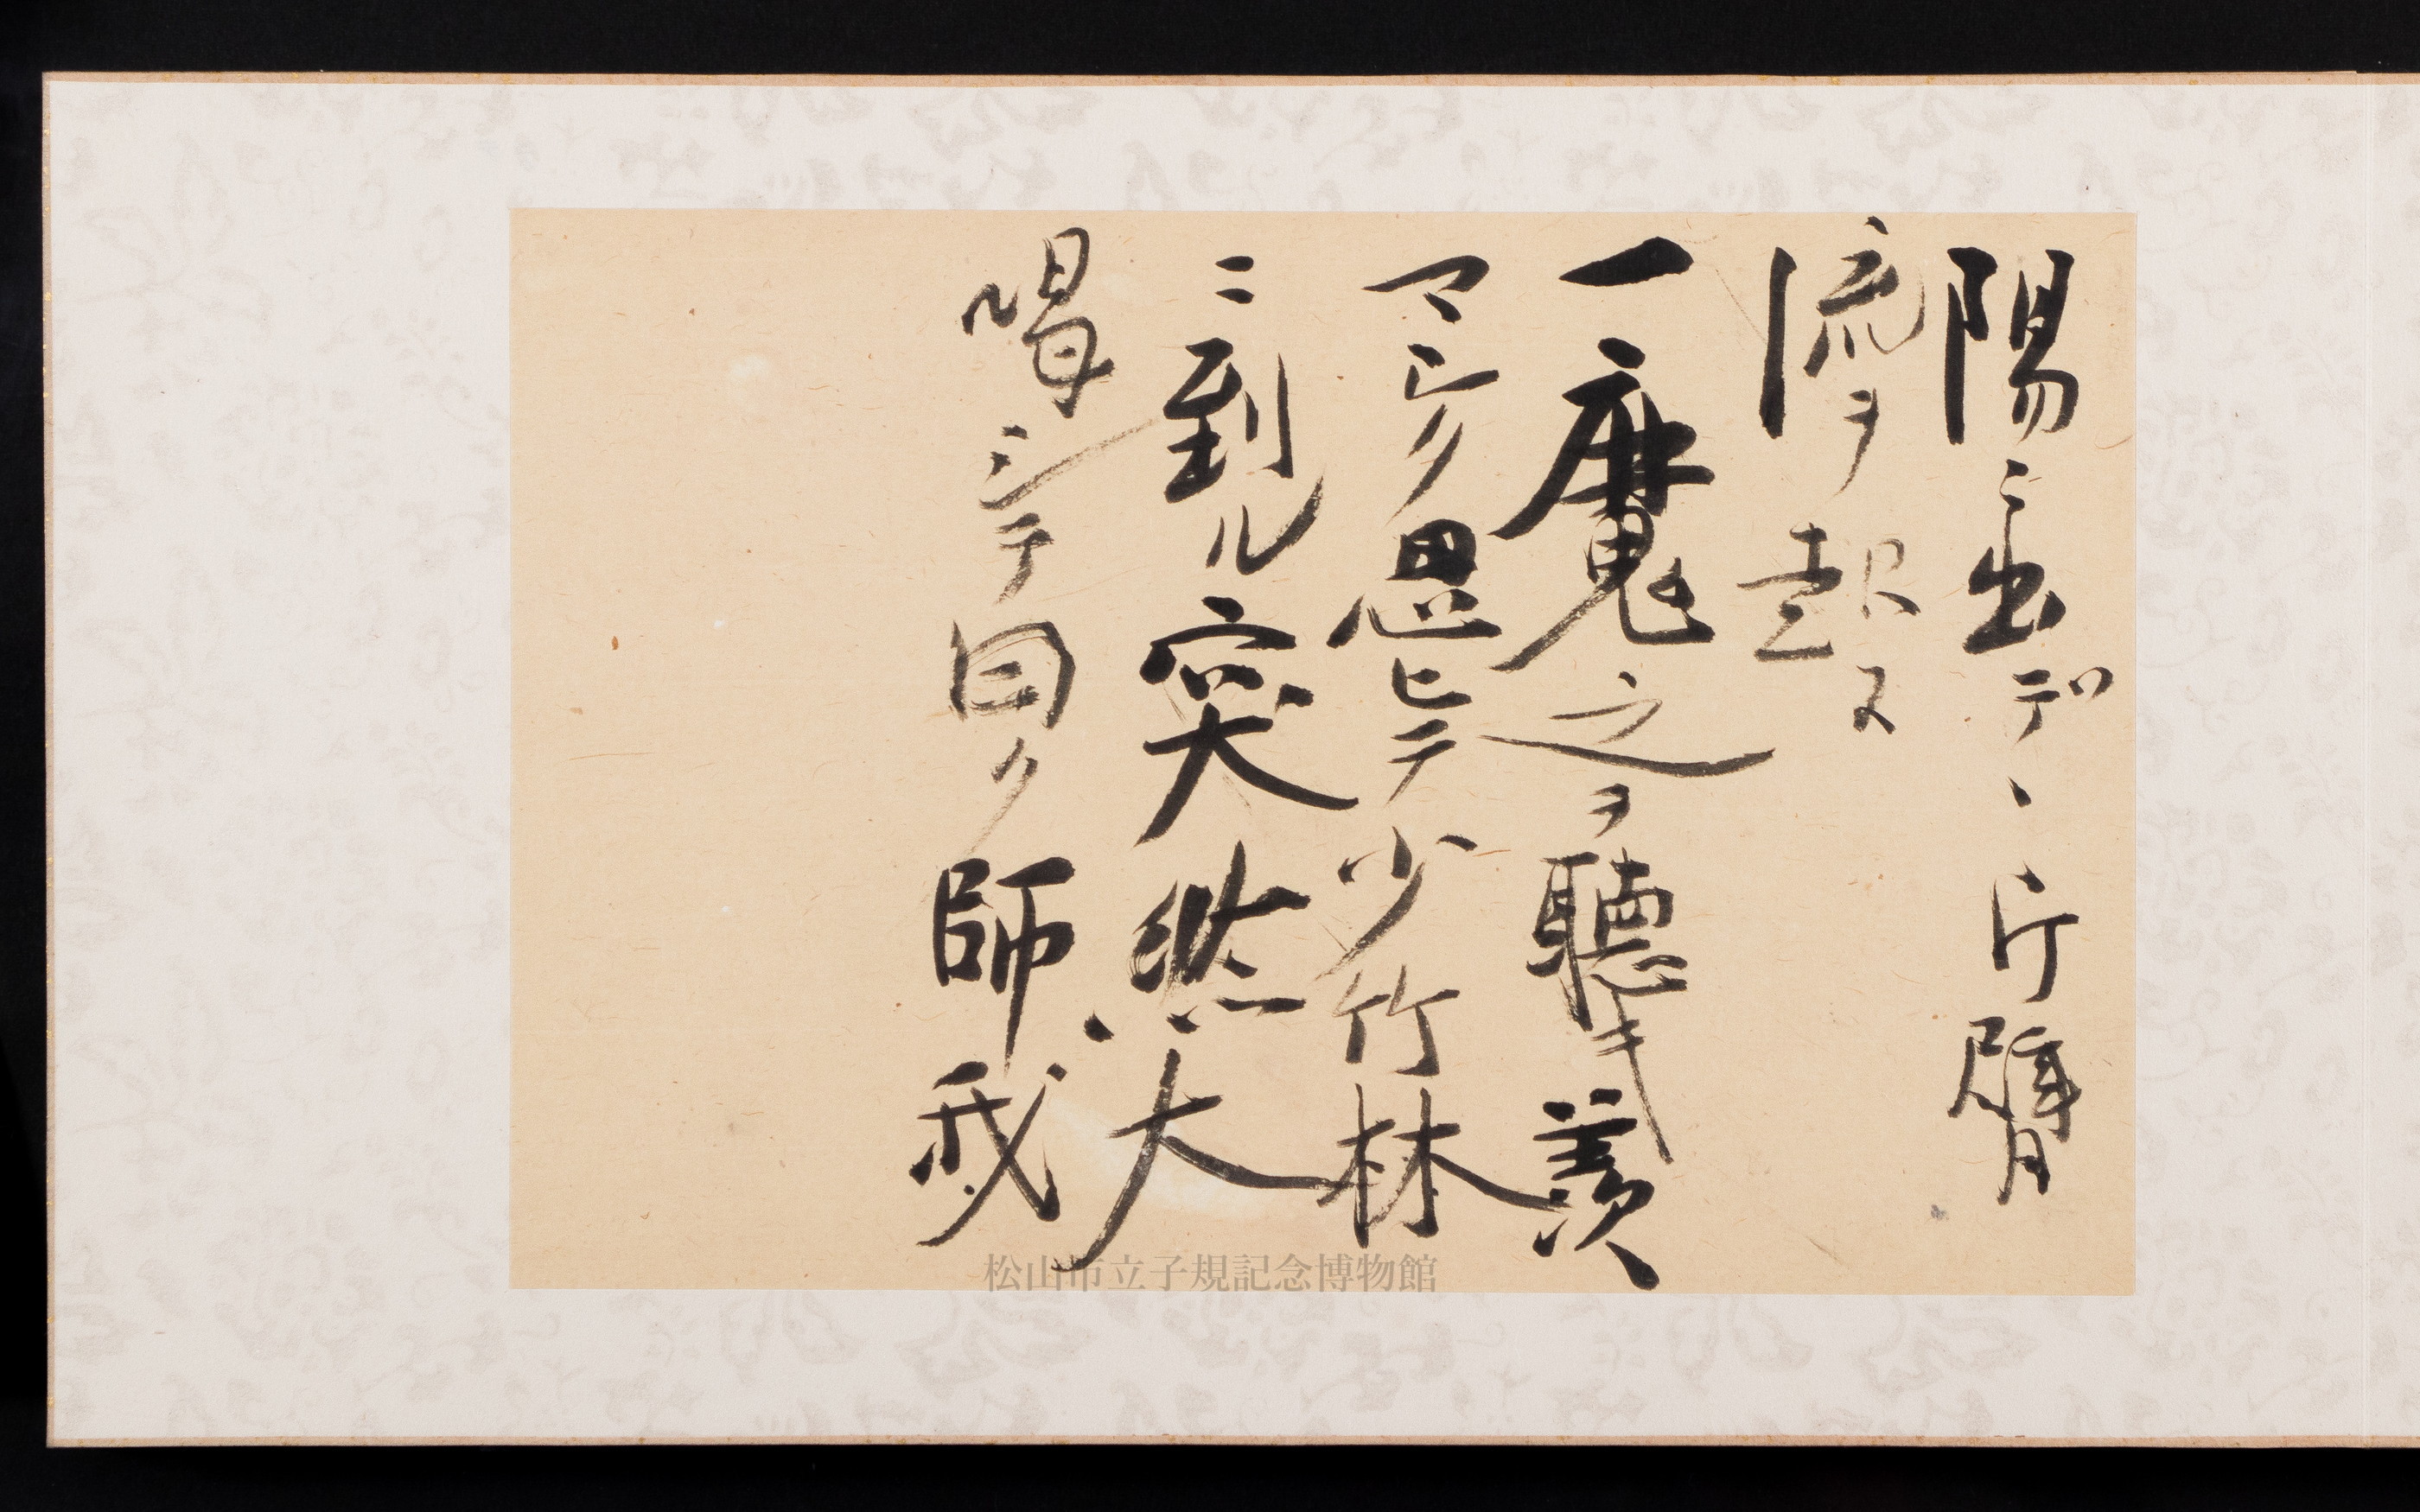 陽ニ出デヽ片臂
流ヲ鼓ス
一魔之ヲ聴キ羨
マシク思ヒテ少竹林
ニ到ル突然大
喝シテ曰ク師我
松山市立子規記念博物館